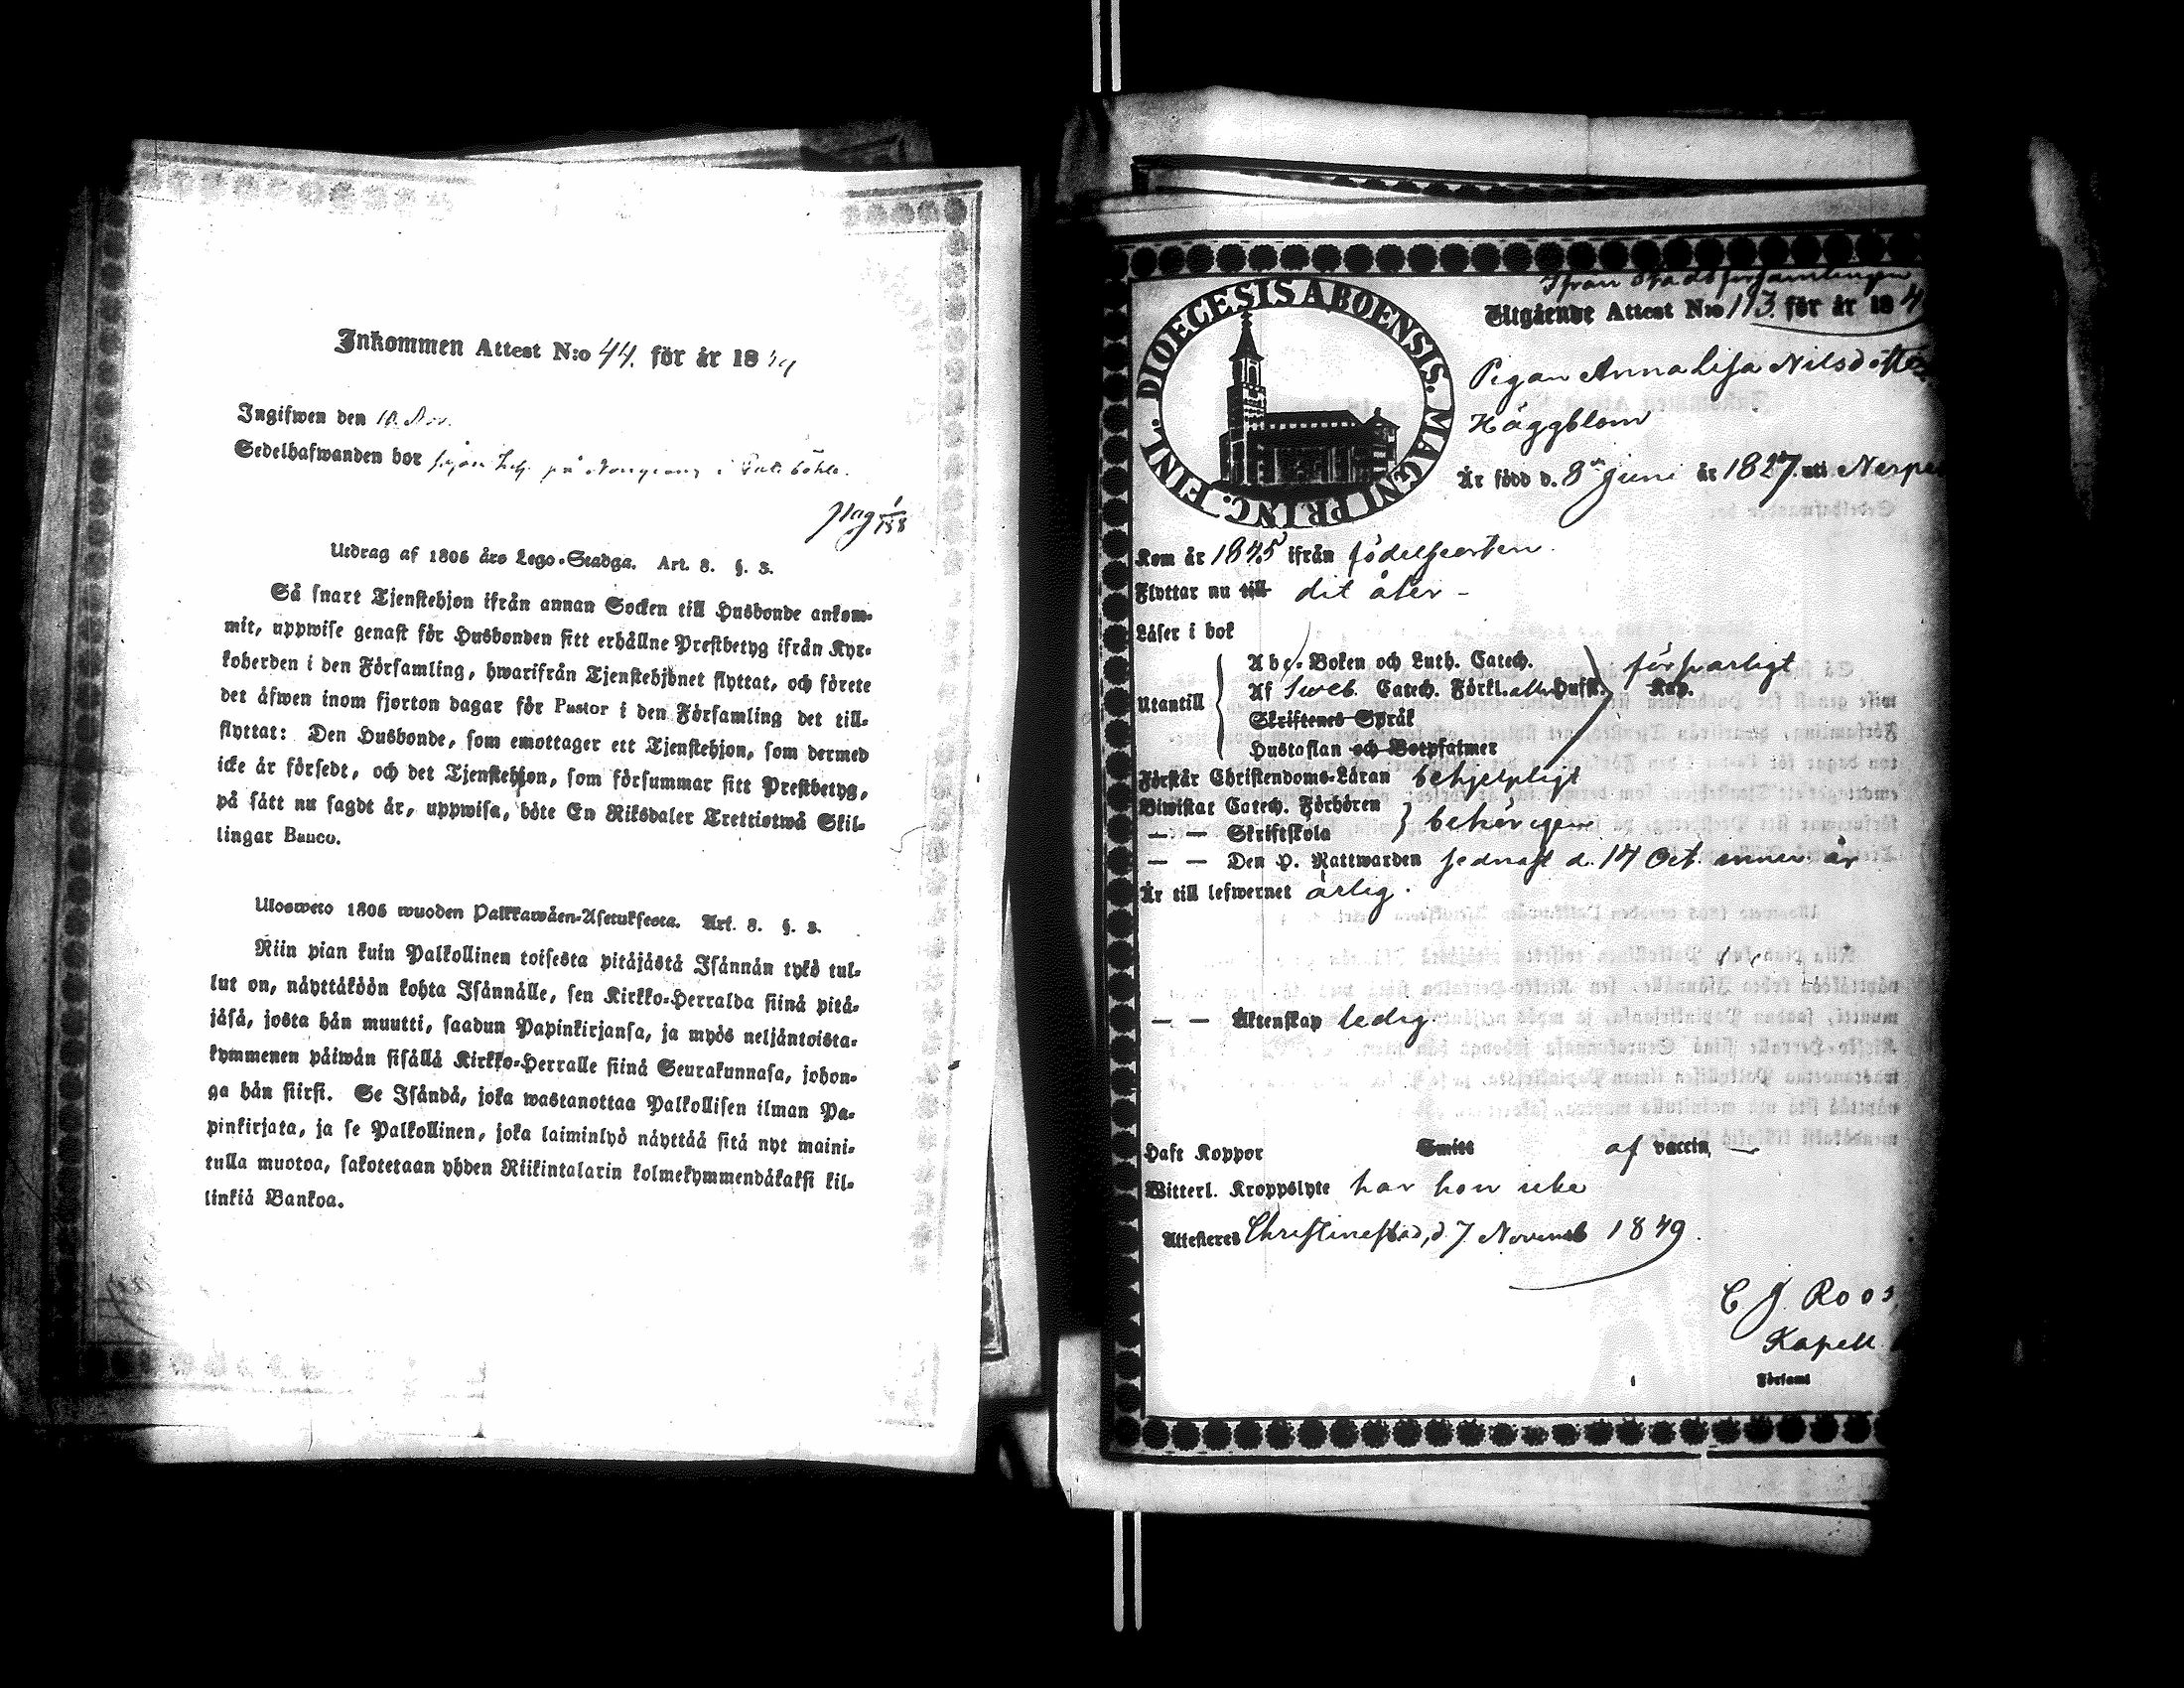 Inkommen Attest N:o 44. för år 1849
Ingifwen den 10. Nov.
Sedelhafwanden bor på i
pag 1/188
Utdrag af 1805 års Lego-Stadga. Art. 8. §. 3.
Så snart Tjenstehjon ifrån annan Socken till Husbonde ankom-
mit, uppwise genast för Husbonden sitt erhållne Prestbetyg ifrån Kyr-
koherden i den Församling, hwarifrån Tjenstehjonet flyttat, och förete
det äfwen inom fjorton dagar för Pastor i den Församling det till-
flyttat: Den Husbonde, som emottager ett Tjenstehjon, som dermed
icke är försedt, och det Tjenstehjon, som försummar sitt Prestbetyg,
på sätt nu sagdt är, uppwisa, böte En Riksdaler Trettiotwå Skil-
lingar Banco.
Ulosweto 1805 wuoden Palkkawäen-Asetuksesta. Art. 8. §. 3.
Niin pian kuin Palkollinen toisesta pitäjästä Isännän tykö tul-
lut on, näyttäköön kohta Isännälle, sen Kirkko-Herralda siinä pitä-
jäsä, josta hän muutti, saadun Papinkirjansa, ja myös neljäntoista-
kymmenen päiwän sisällä Kirkko-Herralle siinä Seurakunnasa, johon-
ga hän siirsi. Se Isändä, joka wastanottaa Palkollisen ilman Pa-
pinkirjata, ja se Palkollinen, joka laiminlyö näyttää sitä nyt maini-
tulla muotoa, sakotetaan yhden Riikintalarin kolmekymmendäkaksi kil-
linkiä Bankoa.
DIOECESIS ABOENSIS. MAGNI PRINC. FINL.
Ifrån Stadsförsamlingen
Utgående Attest N:o 113. för år 184
Pigan Anna Lisa Nilsdotter
Häggblom
Är född d. 8 Juni år 1827. uti Nerpes
Kom år 1845 ifrån födelseorten.
Flyttar nu till dit åter -
Läser i bok
Utantill
Abc-Boken och Luth. Catech. försvarligt
Af Sveb. Catech. Förkl. Hufst. Kap.
Skriftenes Språk
Hustaflan och Botpsalmer
Förstår Christendoms-Läran behjelpligt
Biwistat Catech. Förhören
— — Skriftskola behörigen
— — Den H. Nattwarden sednast d. 14 Oct. inner. år
Är till lefwernet ärlig.
— — Äktenskap ledig.
Haft Koppor Smitt af vaccin —
Witterl. Kroppslyte har hon icke
Attesteres Christinestad, d. 7 Novemb 1849.
C J. Roos,
Kapell.
Församl